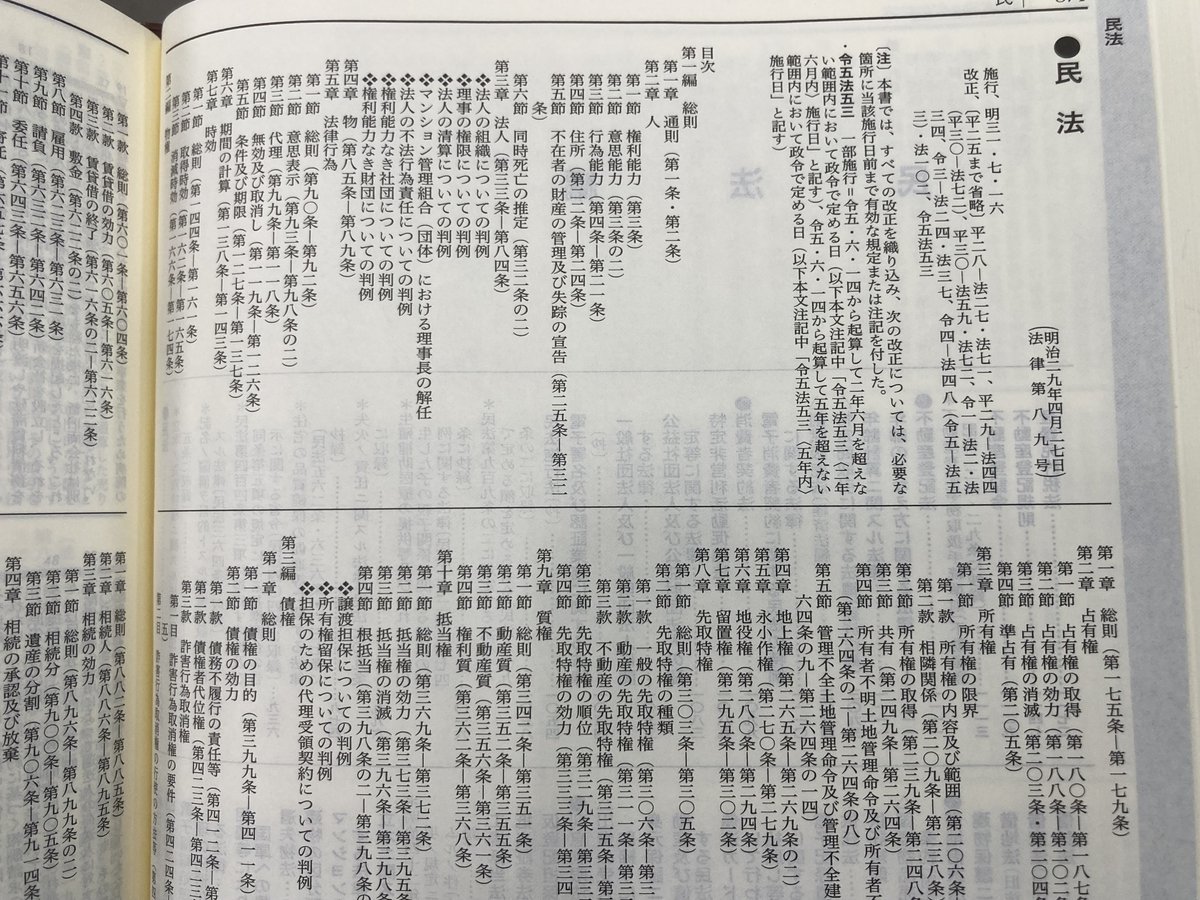 民法
●民法
(明治二九年四月二七日)
(法律第八九号)
施行、明三一・七・一六
改正、(平二五まで省略)平二八―法二七・法七一、平二九―法四四
(平三〇―法七二)、平三〇―法五九・法七二、令一―法二・法
三四、令三―法二四・法三七、令四―法四八(令五―法五
三)・法一〇二、令五法五三
〔注〕本書では、すべての改正を織り込み、次の改正については、必要な
箇所に当該施行日前まで有効な規定または注記を付した。
・令五法五三 一部施行=令五・六・一四から起算して二年六月を超えな
い範囲内において政令で定める日(以下本文注記中「令五法五三(二年
六月内)施行日」と記す)、令五・六・一四から起算して五年を超えない
範囲内において政令で定める日(以下本文注記中「令五法五三(五年内)
施行日」と記す)
目次
第一編 総則
第一章 通則(第一条・第二条)
第二章 人
第一節 権利能力(第三条)
第二節 意思能力(第三条の二)
第三節 行為能力(第四条―第二一条)
第四節 住所(第二二条―第二四条)
第五節 不在者の財産の管理及び失踪の宣告(第二五条―第三二
条)
第六節 同時死亡の推定(第三二条の二)
第三章 法人(第三三条―第八四条)
❖法人の組織についての判例
❖理事の権限についての判例
❖法人の清算についての判例
❖マンション管理組合(団体)における理事長の解任
❖法人の不法行為責任についての判例
❖権利能力なき社団についての判例
❖権利能力なき財団についての判例
第四章 物(第八五条―第八九条)
第五章 法律行為
第一節 総則(第九〇条―第九二条)
第二節 意思表示(第九三条―第九八条の二)
第三節 代理(第九九条―第一一八条)
第四節 無効及び取消し(第一一九条―第一二六条)
第五節 条件及び期限(第一二七条―第一三七条)
第六章 期間の計算(第一三八条―第一四三条)
第七章 時効
第一節 総則(第一四四条―第一六一条)
第二節 取得時効(第一六二条―第一六五条)
第三節 消滅時効(第一六六条―第一七四条)
第二編 物権
第一章 総則(第一七五条―第一七九条)
第二章 占有権
第一節 占有権の取得(第一八〇条―第一八七
第二節 占有権の効力(第一八八条―第二〇二
第三節 占有権の消滅(第二〇三条・第二〇四
第四節 準占有(第二〇五条)
第三章 所有権
第一節 所有権の限界
第一款 所有権の内容及び範囲(第二〇六条
第二款 相隣関係(第二〇九条―第二三八条)
第二節 所有権の取得(第二三九条―第二四八
第三節 共有(第二四九条―第二六四条)
第四節 所有者不明土地管理命令及び所有者不
(第二六四条の二―第二六四条の八)
第五節 管理不全土地管理命令及び管理不全建
六四条の九―第二六四条の一四)
第四章 地上権(第二六五条―第二六九条の二)
第五章 永小作権(第二七〇条―第二七九条)
第六章 地役権(第二八〇条―第二九四条)
第七章 留置権(第二九五条―第三〇二条)
第八章 先取特権
第一節 総則(第三〇三条―第三〇五条)
第二節 先取特権の種類
第一款 一般の先取特権(第三〇六条―第三一
第二款 動産の先取特権(第三一一条―第三二
第三款 不動産の先取特権(第三二五条―第三二
第三節 先取特権の順位(第三二九条―第三三
第四節 先取特権の効力(第三三三条―第三四
第九章 質権
第一節 総則(第三四二条―第三五一条)
第二節 動産質(第三五二条―第三五五条)
第三節 不動産質(第三五六条―第三六一条)
第四節 権利質(第三六二条―第三六八条)
第十章 抵当権
第一節 総則(第三六九条―第三七二条)
第二節 抵当権の効力(第三七三条―第三九五条
第三節 抵当権の消滅(第三九六条―第三九八条
第四節 根抵当(第三九八条の二―第三九八条の
❖譲渡担保についての判例
❖所有権留保についての判例
❖担保のための代理受領契約についての判例
第三編 債権
第一章 総則
第一節 債権の目的(第三九九条―第四一一条)
第二節 債権の効力
第一款 債務不履行の責任等(第四一二条―第
第二款 債権者代位権(第四二三条―第四二三
第三款 詐害行為取消権
第一目 詐害行為取消権の要件(第四二四条
五)
第一款 総則(第六〇一条―第六〇四条)
第二款 賃貸借の効力(第六〇五条―第六一六条)
第三款 賃貸借の終了(第六一六条の二―第六二二条)
第四款 敷金(第六二二条の二)
第八節 雇用(第六二三条―第六三一条)
第九節 請負(第六三二条―第六四二条)
第十節 委任(第六四三条―第六五六条)
第一章 総則(第八八二条―第八八五条)
第二章 相続人(第八八六条―第八九五条)
第三章 相続の効力
第一節 総則(第八九六条―第八九九条の二)
第二節 相続分(第九〇〇条―第九〇五条)
第三節 遺産の分割(第九〇六条―第九一四条
第四章 相続の承認及び放棄